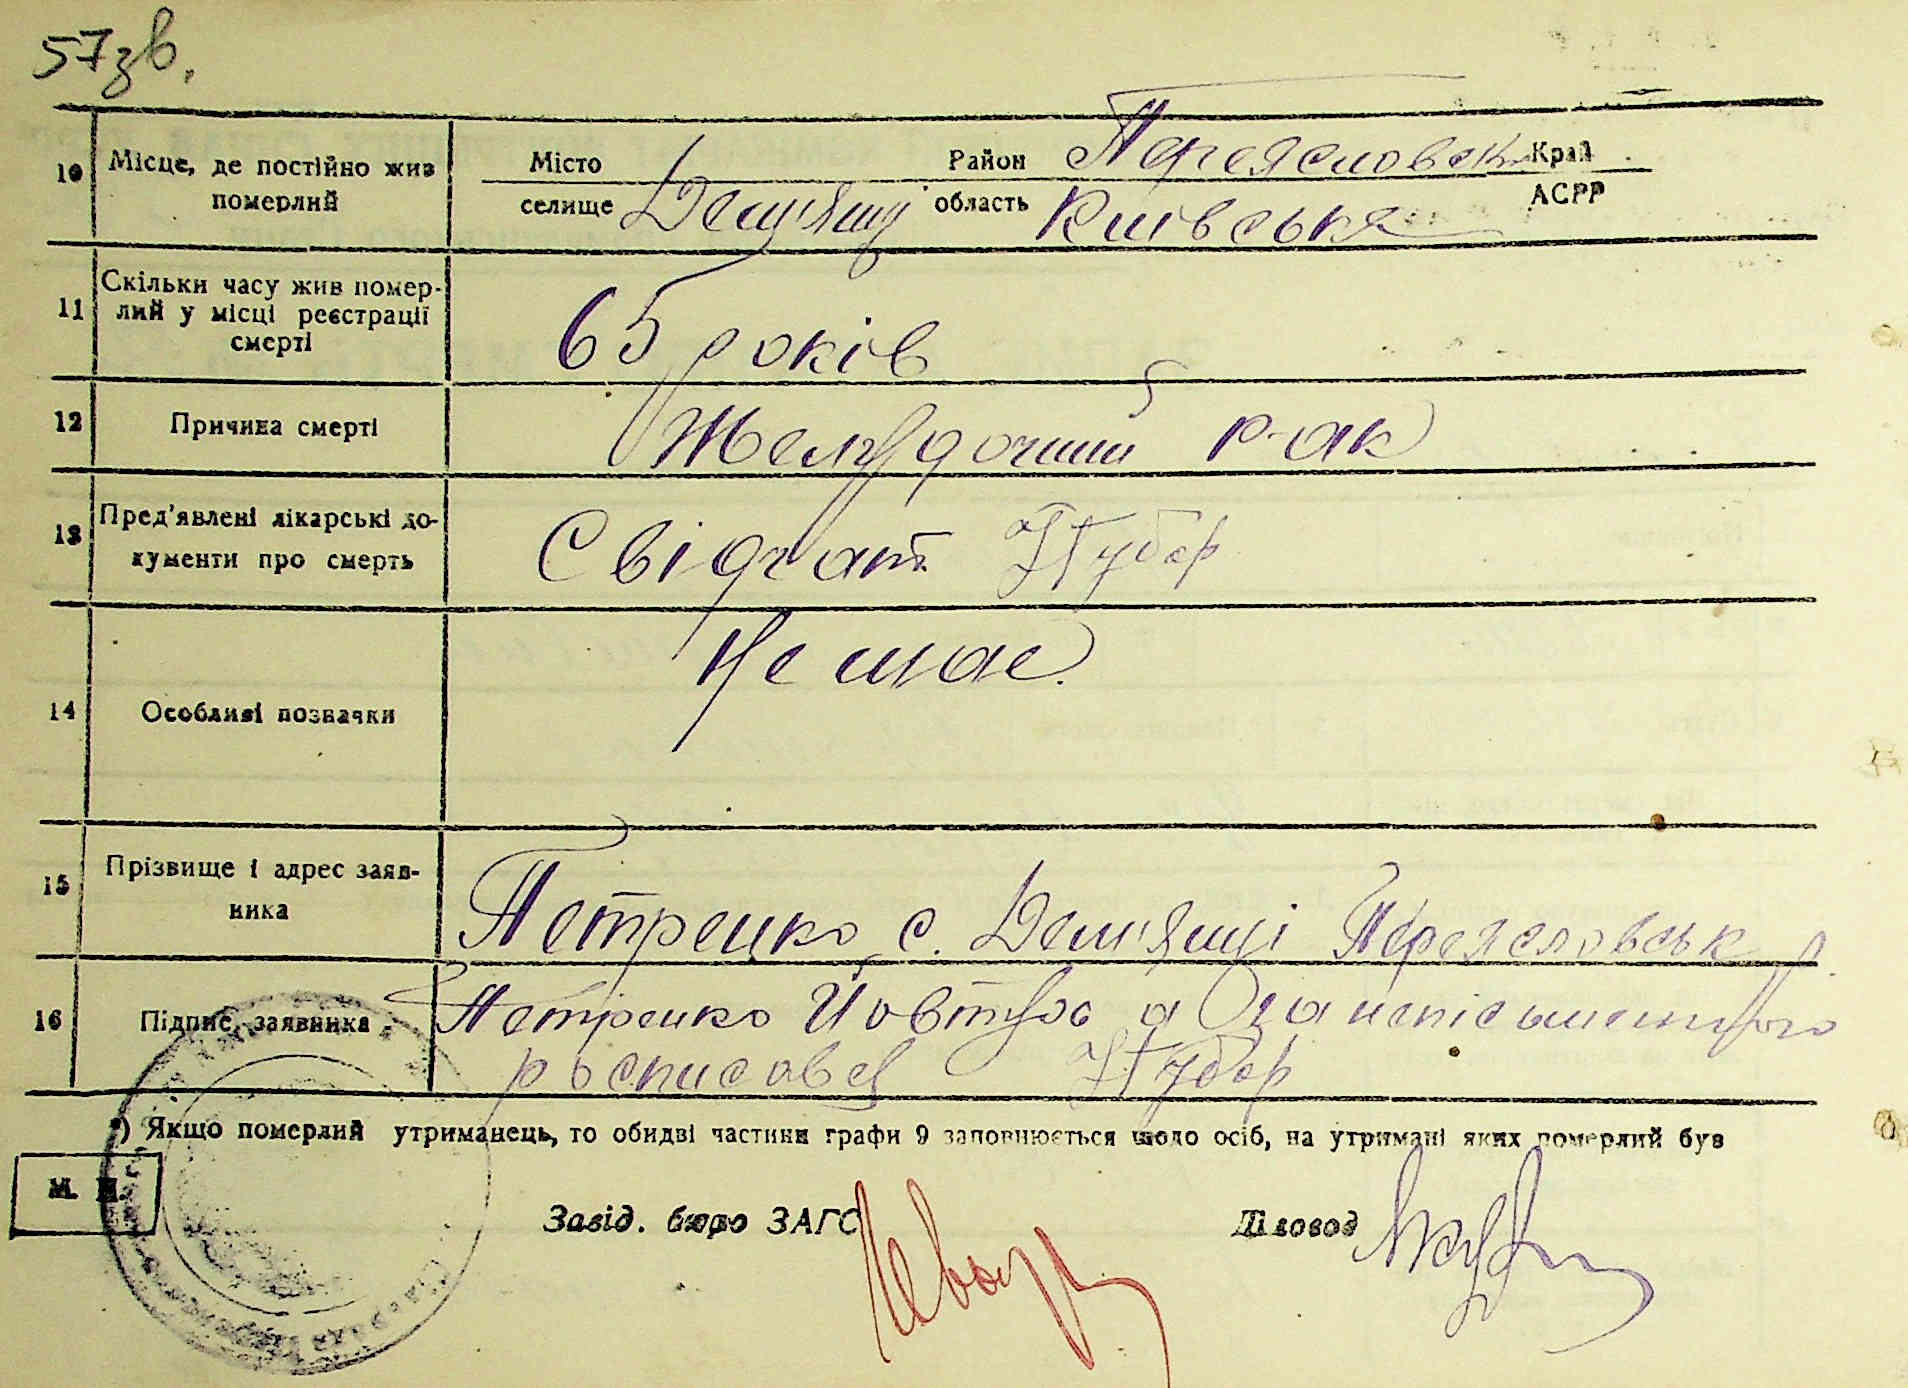 57зв.
10 Місце, де постійно жив померлий
Місто
селище Демянці
Район Переясловськ Край
область Київська АСРР
11 Скільки часу жив помер-
лий у місці реєстрації
смерті
65 років
12 Причина смерті
Желудочний рак
13 Пред'явлені лікарські до-
кументи про смерть
Свідчат
14 Особливі позначки
Не має.
15 Прізвище і адрес заяв-
ника
Петренко с. Дем'янці Переясловськ
16 Підпис, заявника
Петренко Йовтух а за неписьменного
росписовся
*) Якщо померлий утриманець, то обидві частини графи 9 заповнюється щодо осіб, на утримані яких померлий був
М. П.
Завід. бюро ЗАГС
Діловод